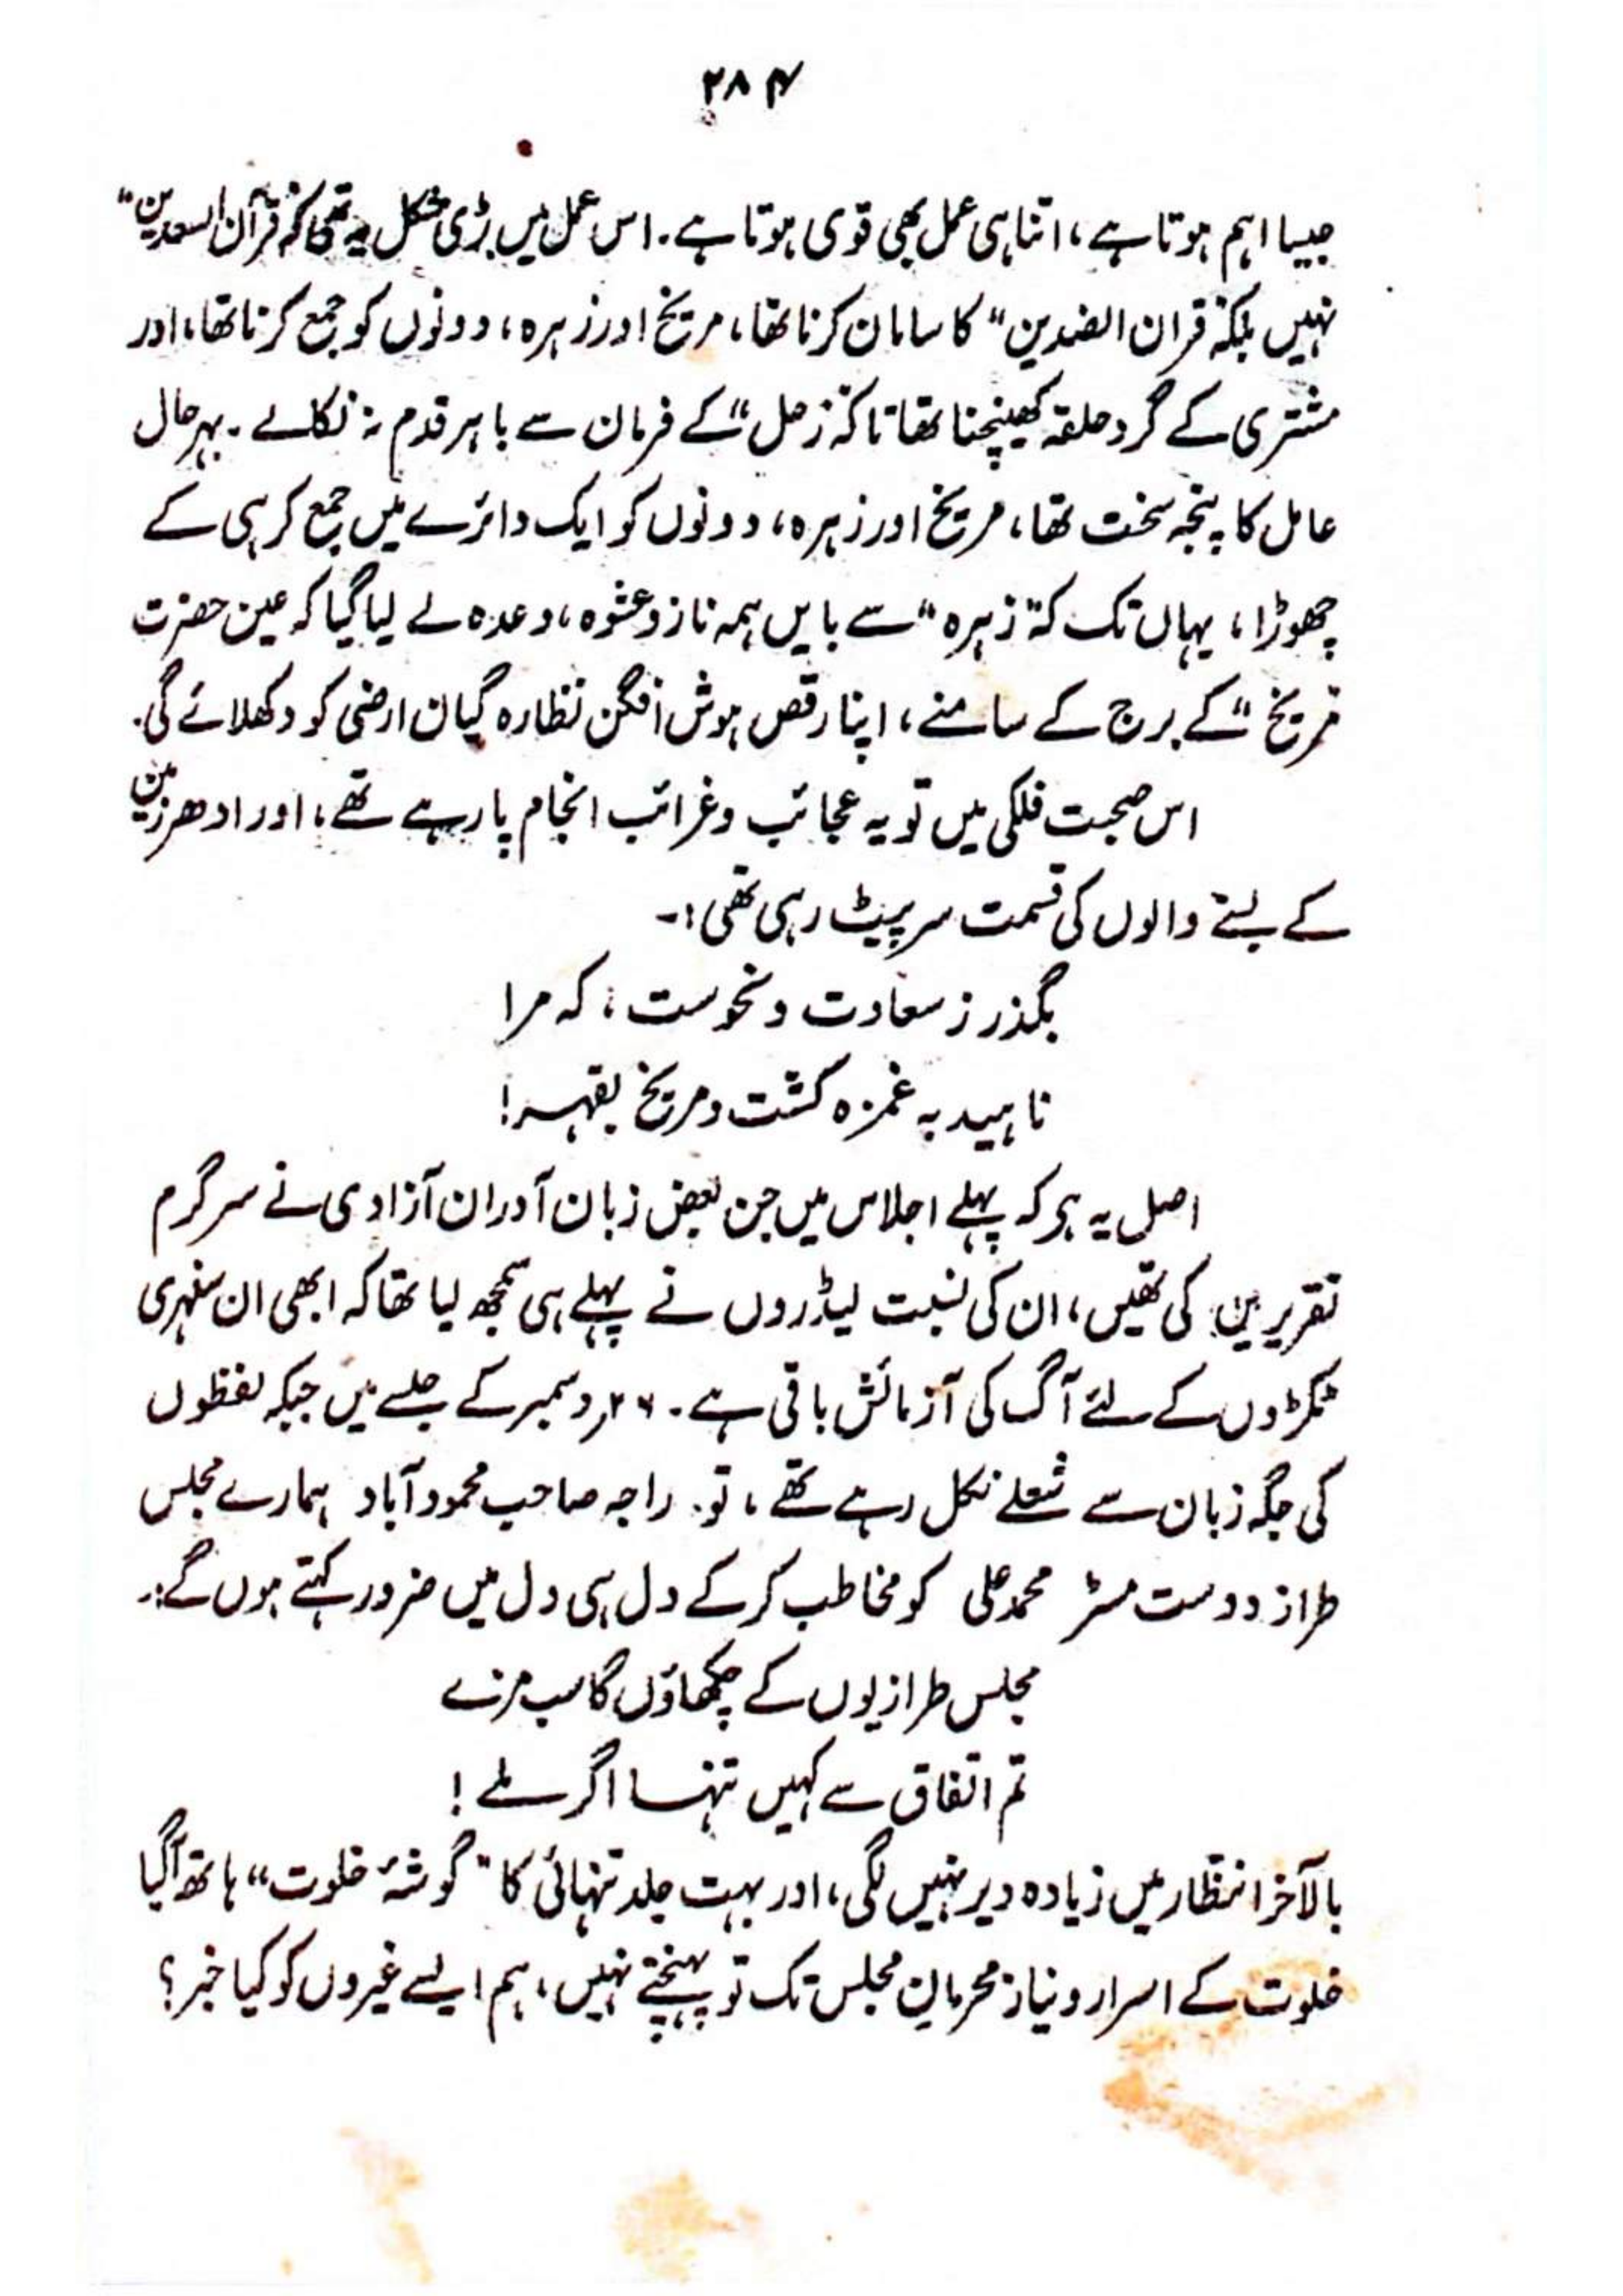 ۲۸۴
جیسا اہم ہوتا ہے، اتنا ہی عمل بھی قوی ہوتا ہے۔ اس عمل میں بڑی مشکل یہ تھی کہ "قرآن السعدین"
نہیں بلکہ "قران الضدین" کا سامان کرنا تھا، مریخ اور زہرہ، دونوں کو جمع کرنا تھا، اور
مشتری کے گرد حلقہ کھینچنا تھا تاکہ "زحل" کے فرمان سے باہر قدم نہ نکالے۔ بہرحال
عامل کا پنجہ سخت تھا، مریخ اور زہرہ، دونوں کو ایک دائرے میں جمع کر ہی کے
چھوڑا، یہاں تک کہ "زہرہ" سے بایں ہمہ ناز و عشوہ، وعدہ لے لیا گیا کہ عین حضرت
"مریخ" کے برج کے سامنے، اپنا رقص ہوش افگن نظارہ گیان ارضی کو دکھلائے گی۔
اس صحبت فلکی میں تو یہ عجائب و غرائب انجام پا رہے تھے، اور ادھر زمین
کے بسنے والوں کی قسمت سر پیٹ رہی تھی:-
بگذر ز سعادت و نحوست، کہ مرا
ناہید بہ غمزہ کشت و مریخ بقہر!
اصل یہ ہے کہ پہلے اجلاس میں جن بعض زبان آوران آزادی نے سرگرم
تقریریں کی تھیں، ان کی نسبت لیڈروں نے پہلے ہی سمجھ لیا تھا کہ ابھی ان سنہری
ٹکڑوں کے لئے آگ کی آزمائش باقی ہے۔ ۲۶ر دسمبر کے جلسے میں جبکہ لفظوں
کی جگہ زبان سے شعلے نکل رہے تھے، تو۔ راجہ صاحب محمود آباد ہمارے مجلس
طراز دوست مسٹر محمد علی کو مخاطب کرکے دل ہی دل میں ضرور کہتے ہوں گے:۔
مجلس طرازیوں کے چکھاؤں گا سب مزے
تم اتفاق سے کہیں تنہا اگر ملے!
بالآخر انتظار میں زیادہ دیر نہیں لگی، اور بہت جلد تنہائی کا "گوشۂ خلوت" ہاتھ آ گیا
خلوت کے اسرار و نیاز محرمانِ مجلس تک تو پہنچتے نہیں، ہم ایسے غیروں کو کیا خبر؟